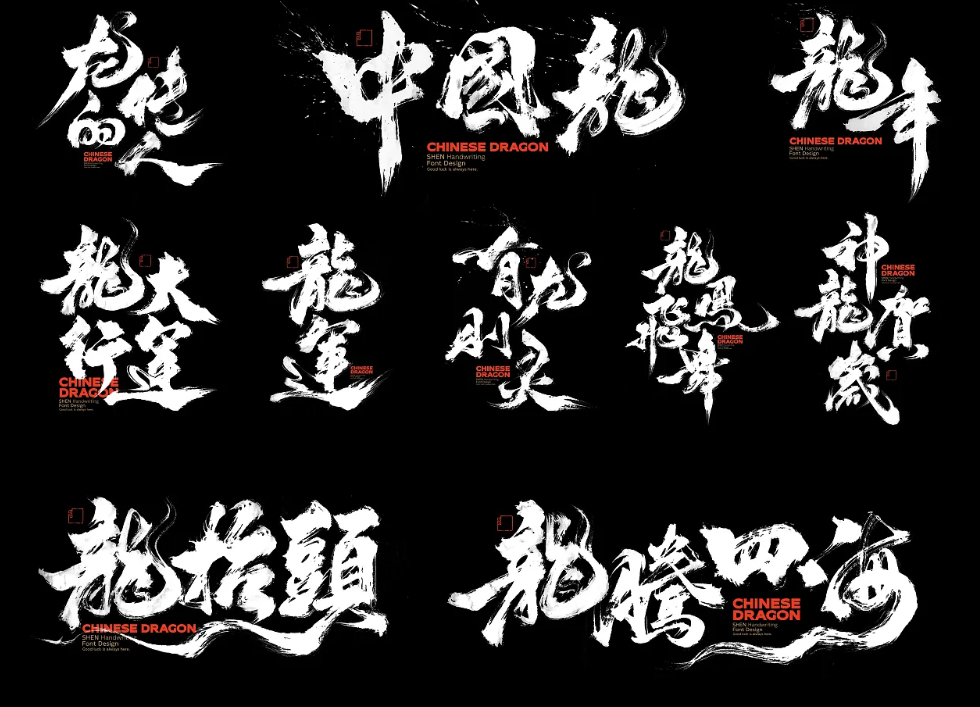 龙传
的人
CHINESE
DRAGON
中國龍
CHINESE DRAGON
SHEN Handwriting
Font Design
Good luck is always here.
龍年
CHINESE DRAGON
SHEN Handwriting
Font Design
Good luck is always here.
龍大
行運
CHINESE
DRAGON
SHEN Handwriting
Font Design
Good luck is always here.
龍
運
CHINESE
DRAGON
有龙
則灵
CHINESE
DRAGON
龍馬
飛舞
CHINESE
DRAGON
神
龍賀
歲
CHINESE
DRAGON
龍抬頭
CHINESE DRAGON
SHEN Handwriting
Font Design
Good luck is always here.
龍騰四海
CHINESE
DRAGON
SHEN Handwriting
Font Design
Good luck is always here.